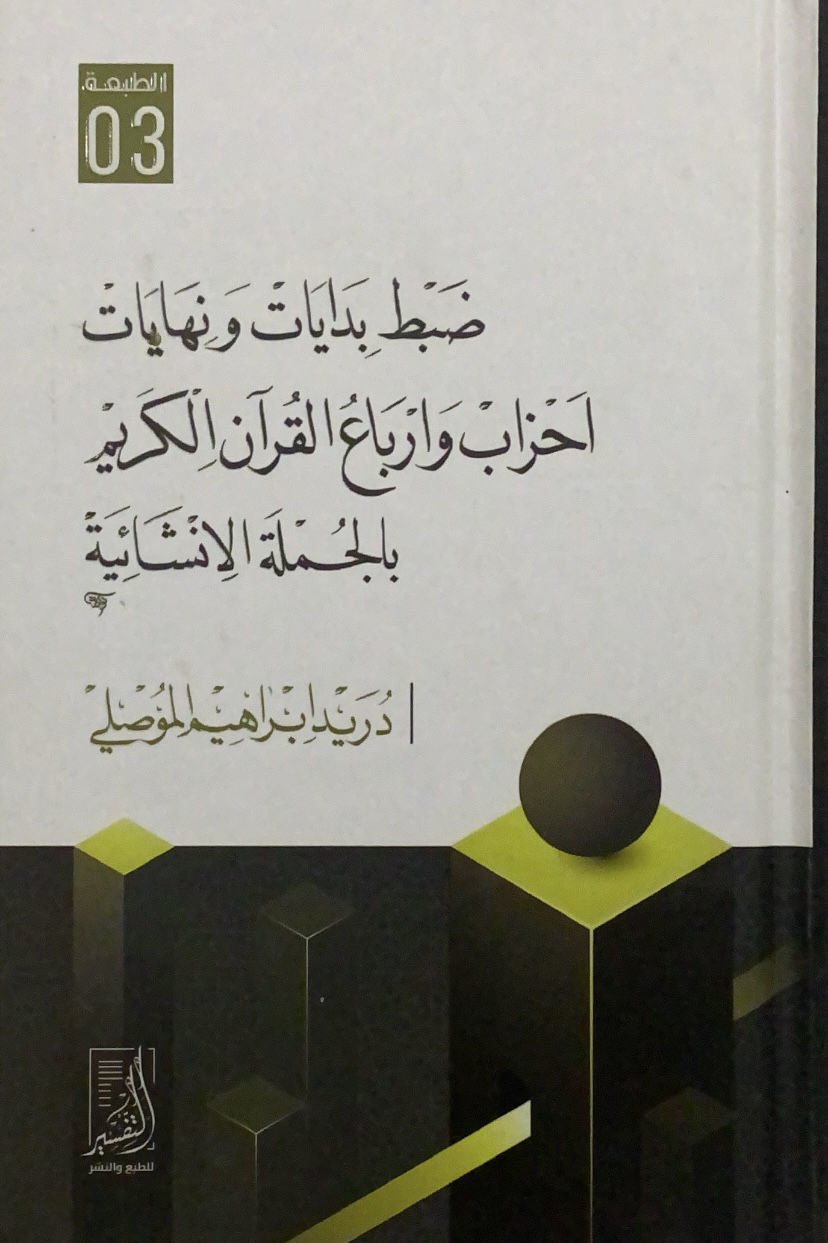 الطبعة
03
ضَبْط بِدَايَاتْ وَنِهَايَاتْ
اَحْزابْ وَارْبَاعُ القُرآن الْكَرِيمْ
بالجُمْلَة الاِنْشَائِيَةْ
دُرَيْد اِبْرَاهِيم المُوْصْلِي
التفسير
للطبع والنشر